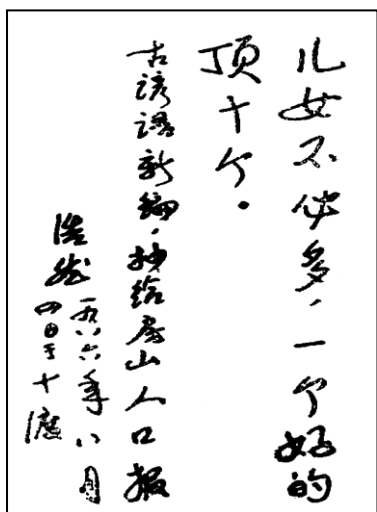 儿女不必多，一个好的
顶十个。
古谚语新编，抄给房山人口报
浩然
一九八六年八月
四日于十渡